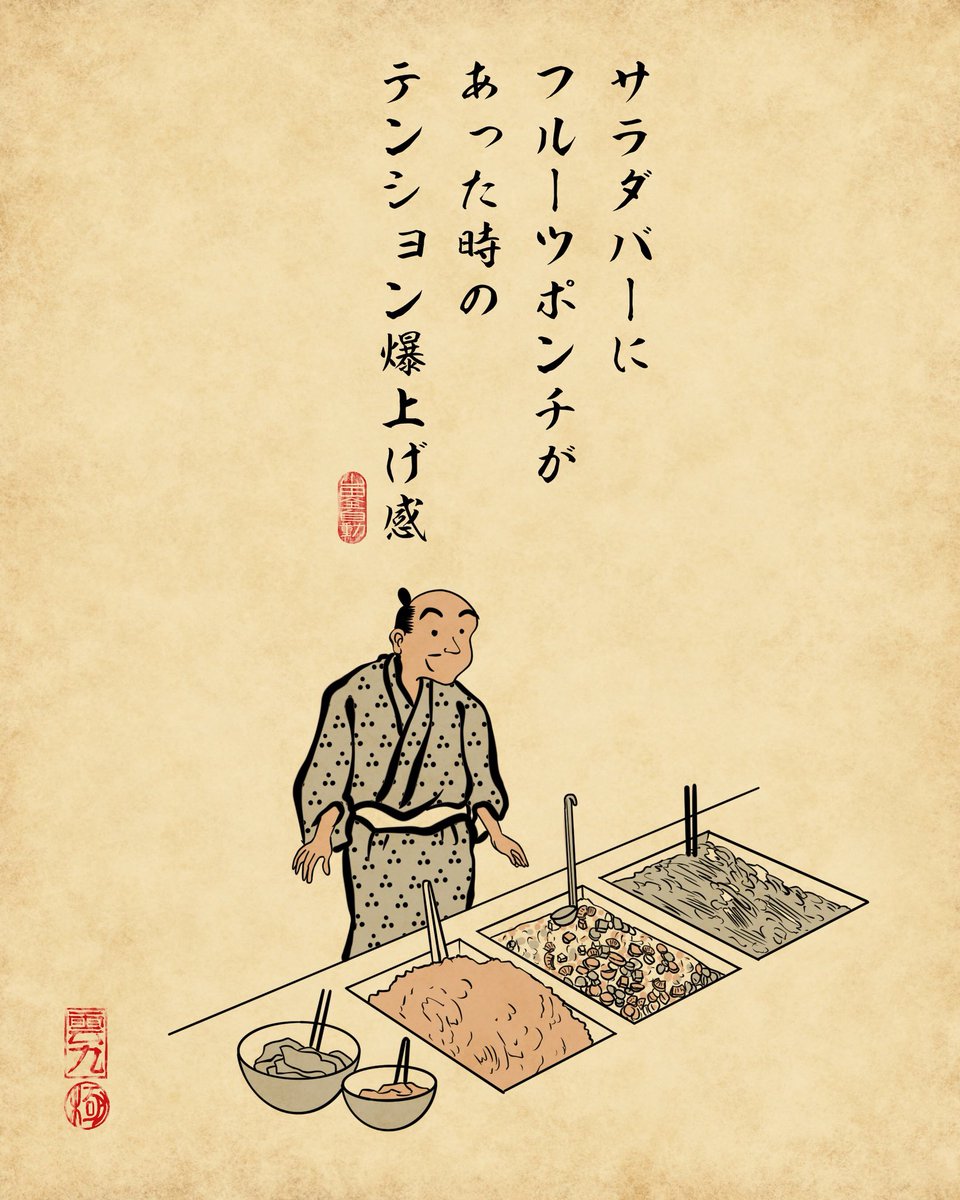 サラダバーに
フルーツポンチが
あった時の
テンション爆上げ感